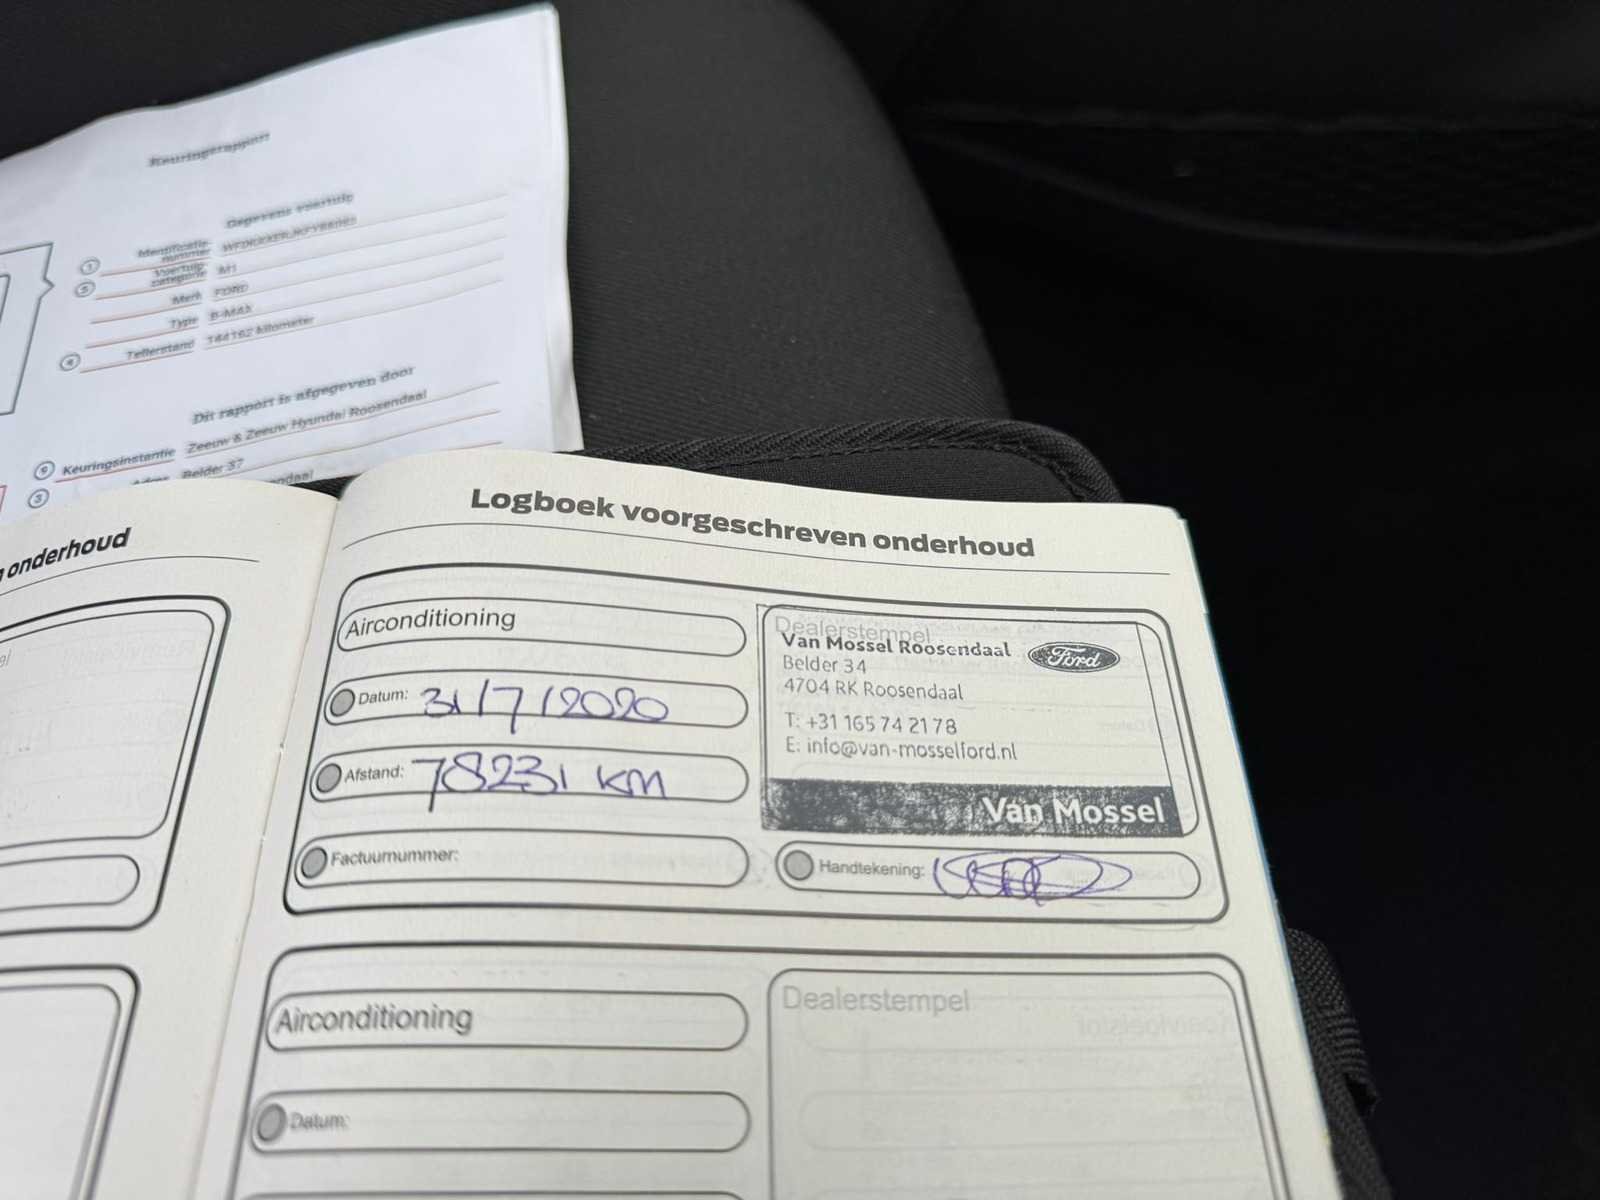 Keuringsrapport
Gegevens voertuig
Identificatie-
nummer
Voertuig-
categorie M1
Merk FORD
Type B-MAX
Tellerstand 144162 kilometer
Dit rapport is afgegeven door
Keuringsinstantie Zeeuw & Zeeuw Hyundai Roosendaal
Adres Belder 37
onderhoud
Logboek voorgeschreven onderhoud
Airconditioning
Datum: 31/7/2020
Afstand: 78231 KM
Factuurnummer:
Dealerstempel
Van Mossel Roosendaal
Ford
Belder 34
4704 RK Roosendaal
T: +31 165 74 21 78
E: info@van-mosselford.nl
Van Mossel
Handtekening:
Airconditioning
Dealerstempel
Datum: